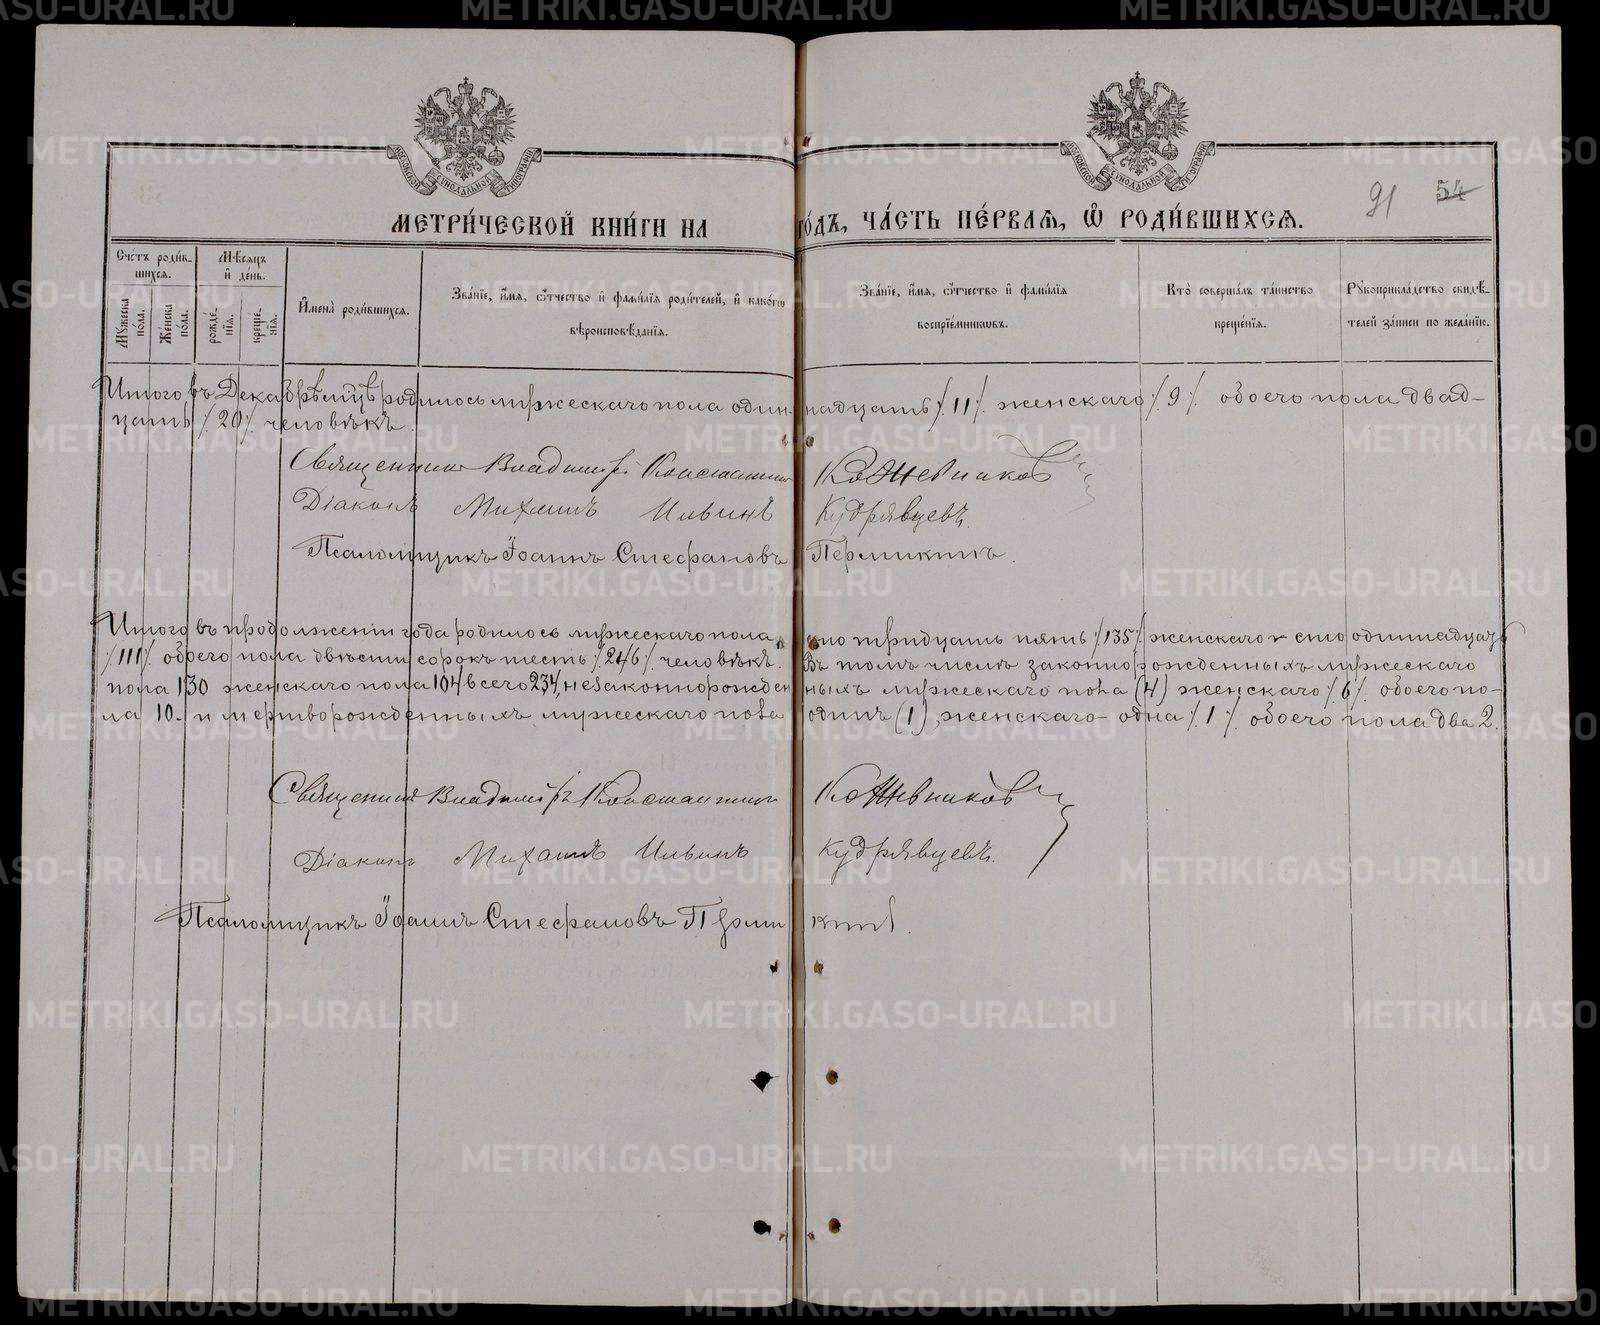 МОСКОВСКОЙ СУНОДАЛЬНОЙ ТИПОГРАФІИ
МОСКОВСКОЙ СУНОДАЛЬНОЙ ТИПОГРАФІИ
91 54
МЕТРИ́ЧЕСКОЙ КНИ́ГИ НА ГО́ДЪ, ЧА́СТЬ ПЕ́РВАѦ, Ѽ РОДИ́ВШИХСѦ.
Сче́тъ роди́в-
шихсѧ.
Мѣ́сѧцъ
и҆ де́нь.
Мꙋ́жеска
по́ла.
Же́нска
по́ла.
рожде́-
нїѧ.
креще́-
нїѧ.
И҆мена̀ роди́вшихсѧ.
Зва́нїе, и҆́мѧ, ѻ҆́тчество и҆ фами́лїѧ роди́телей, и҆ како́гѡ
вѣроисповѣ́данїѧ.
Зва́нїе, и҆́мѧ, ѻ҆́тчество и҆ фами́лїѧ
воспрїе́мникѡвъ.
Кто̀ соверша́лъ та́инство
креще́нїѧ.
Рꙋкоприкла́дство свидѣ́-
телей за́писи по жела́нїю.
Итого въ Декабрѣ мцѣ родилось мужескаго пола один- надцать /. 11 /. женскаго /. 9 /. обоего пола двад-
цать /. 20 /. человѣкъ.
Священник Владимір Константинов Кожевников
Діаконъ Михаилъ Ильинъ Кудрявцевъ.
Псаломщикъ Іоаннъ Стефановъ Пермикинъ.
Итого въ продолженіи года родилось мужескаго пола сто тридцать пять /. 135 /. женскаго сто одиннадцать
/. 111 /. обоего пола двѣсти сорокъ шесть /. 246 /. человѣкъ. Въ томъ числѣ законнорожденныхъ мужескаго
пола 130 женскаго пола 104 всего 234, незаконнорожден ныхъ мужескаго пола (4) женскаго /. 6 /. обоего по-
ла 10 - и мертворожденныхъ мужескаго пола одинъ (1), женскаго - одна /. 1 /. обоего пола два 2.
Священник Владиміръ Константинов Кожевников
Діаконъ Михаилъ Ильинъ Кудрявцевъ.
Псаломщикъ Іоаннъ Стефановъ Перми кинъ.
METRIKI.GASO-URAL.RU